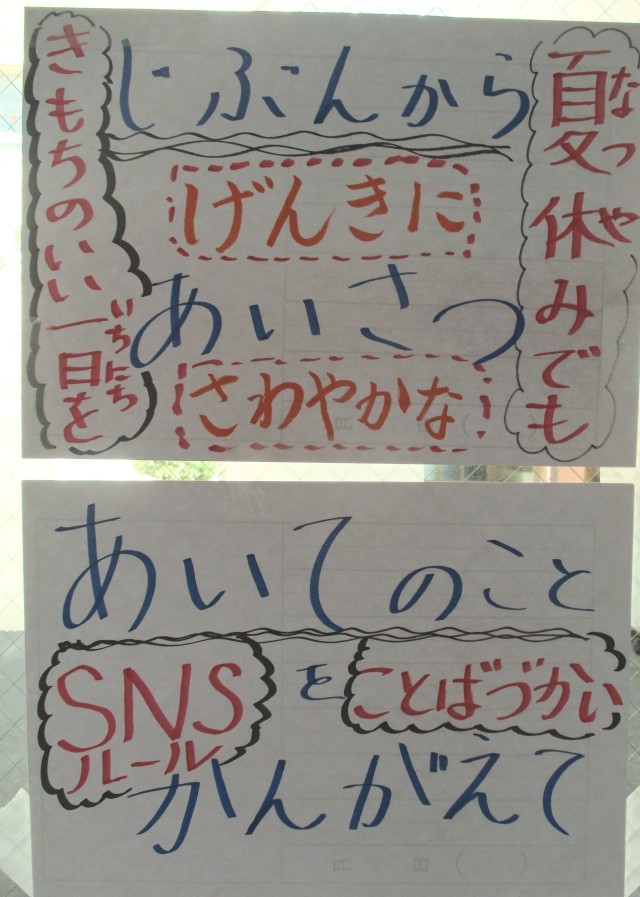 夏休みでも
なつやすみ
じぶんから
げんきに
あいさつ
さわやかな
きもちのいい一日を
いちにち
あいてのこと
を
ことばづかい
SNS
ルール
かんがえて